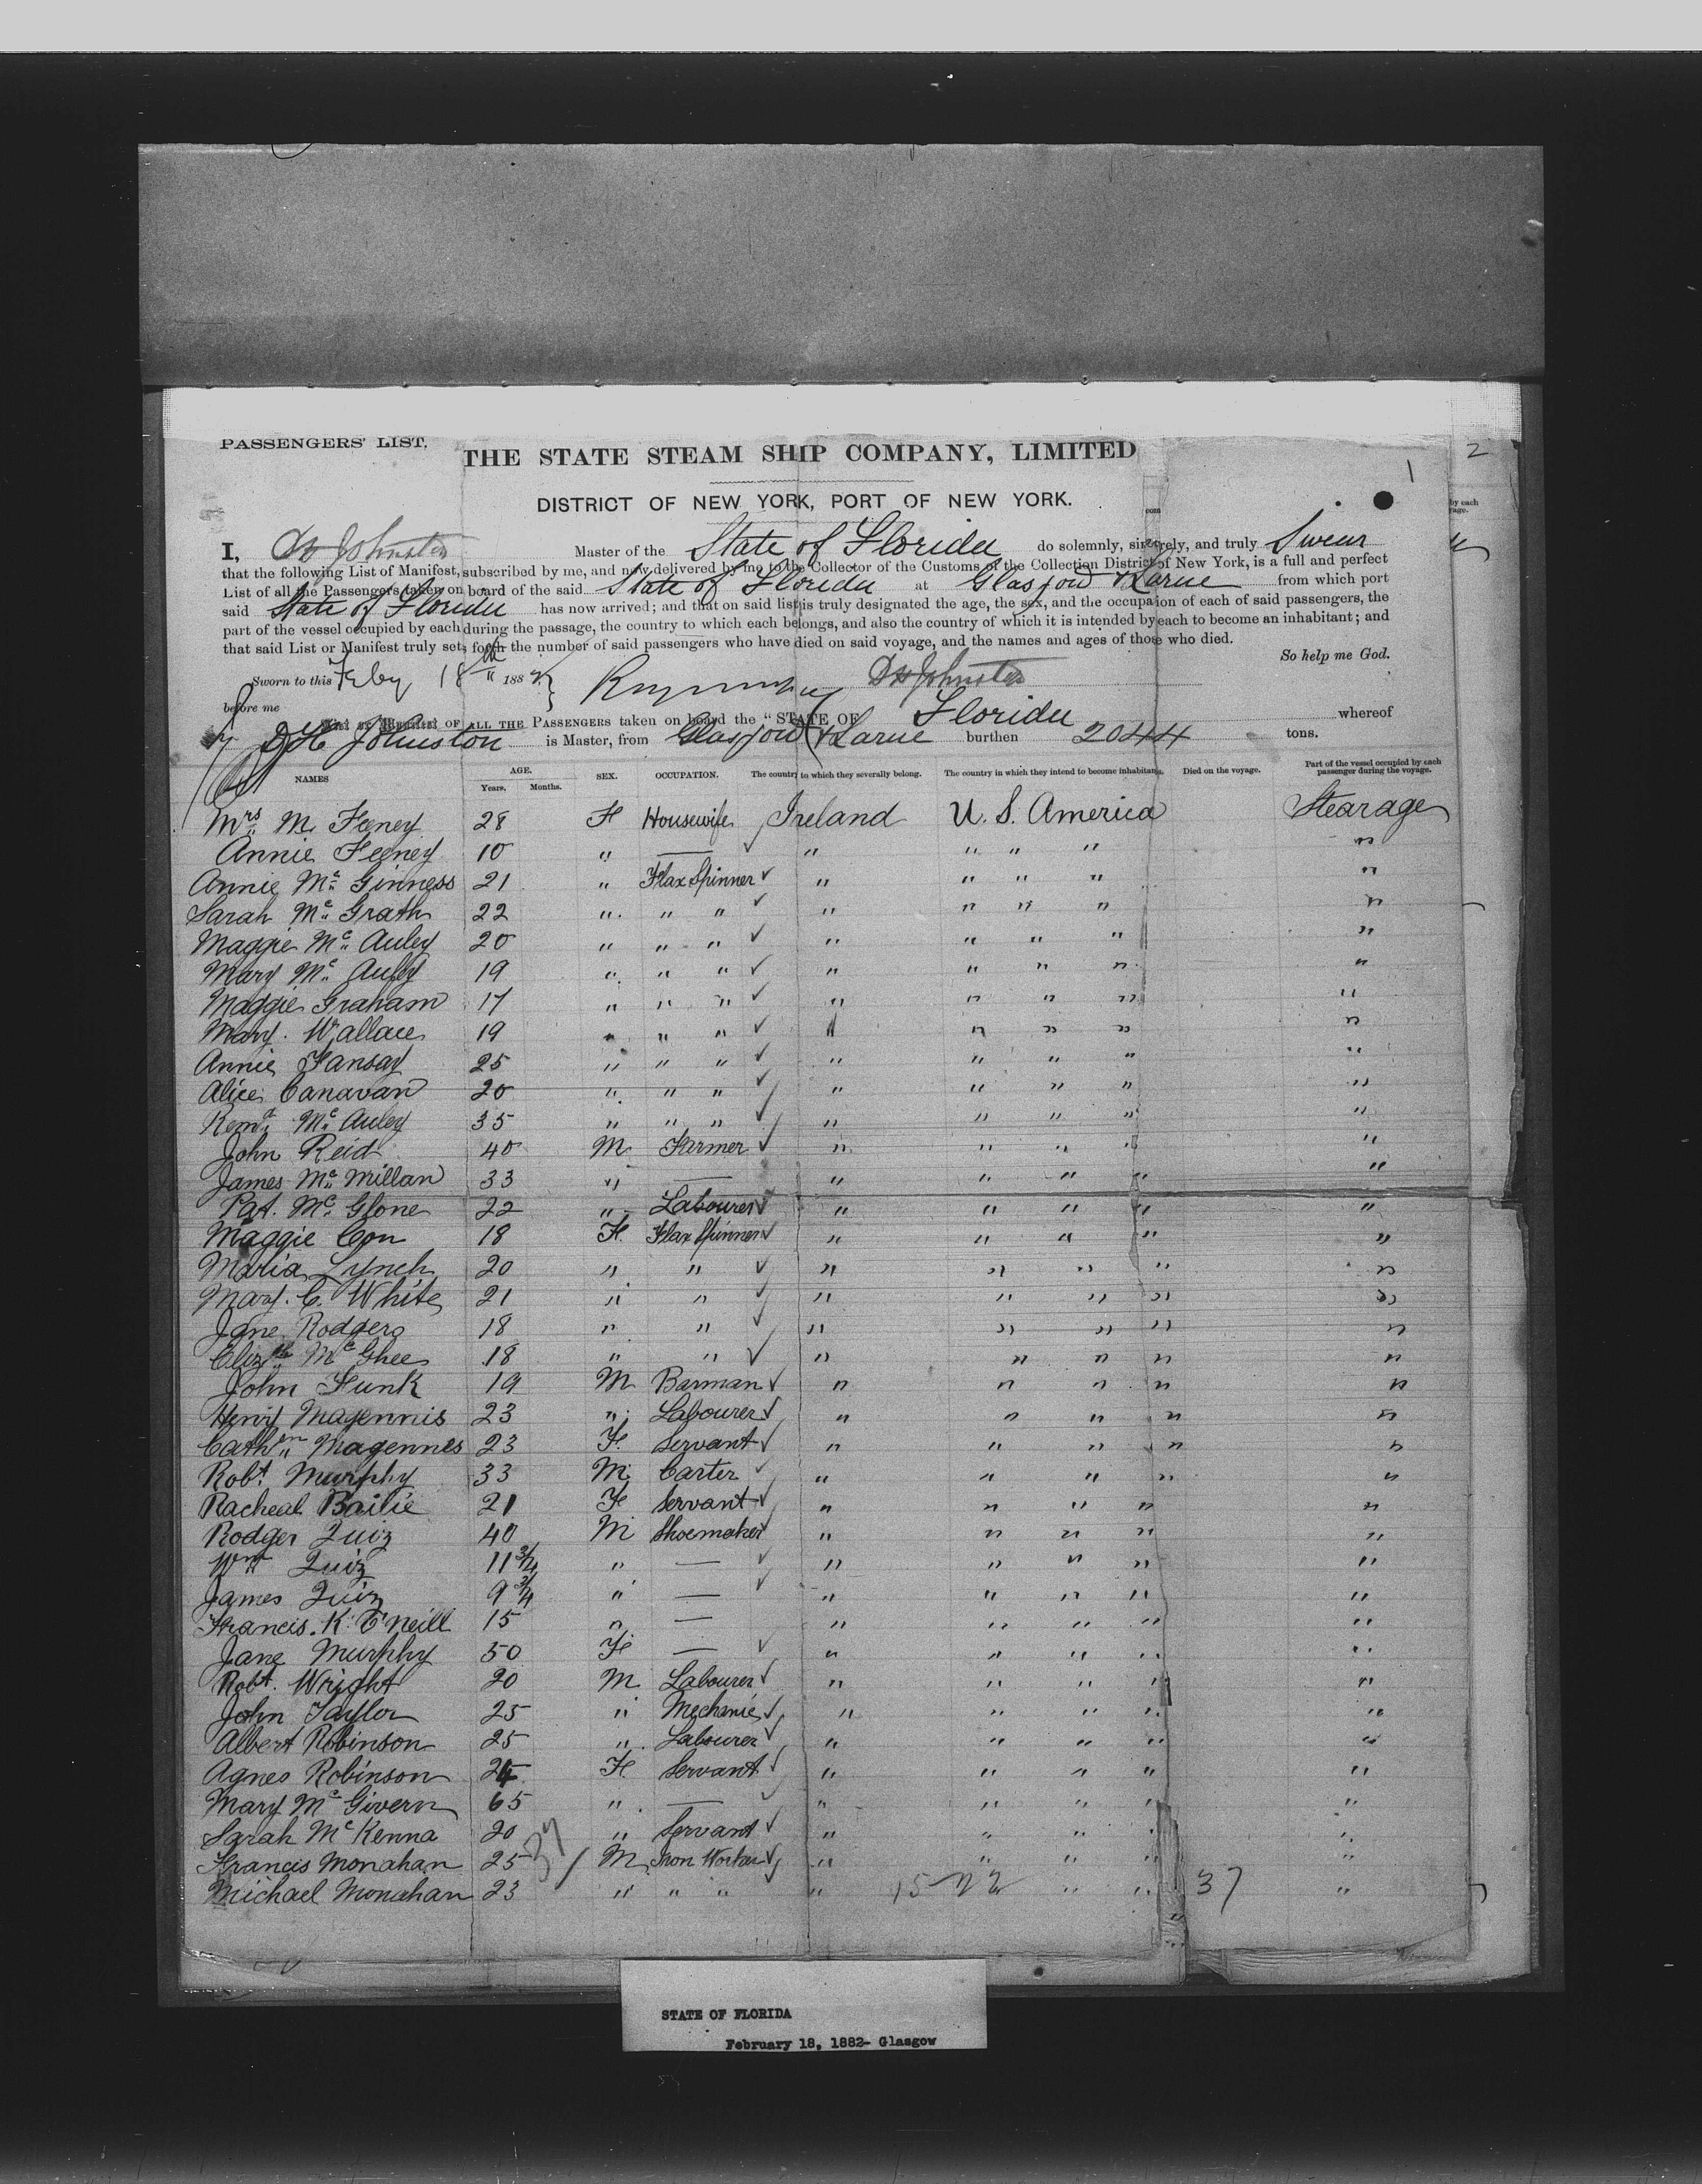 PASSENGERS' LIST.
THE STATE STEAM SHIP COMPANY, LIMITED
2
1
DISTRICT OF NEW YORK, PORT OF NEW YORK.
by each
I, DH Johnston Master of the State of Florida do solemnly, sincerely, and truly Swear
that the following List of Manifest, subscribed by me, and now delivered by me to the Collector of the Customs of the Collection District of New York, is a full and perfect
List of all the Passengers taken on board of the said State of Florida at Glasgow & Larne from which port
said State of Florida has now arrived; and that on said list is truly designated the age, the sex, and the occupation of each of said passengers, the
part of the vessel occupied by each during the passage, the country to which each belongs, and also the country of which it is intended by each to become an inhabitant; and
that said List or Manifest truly sets forth the number of said passengers who have died on said voyage, and the names and ages of those who died.
So help me God.
Sworn to this Feby 18th 1882 DH Johnston
before me
List or Manifest OF ALL THE PASSENGERS taken on board the "STATE OF Florida whereof
DH Johnston is Master, from Glasgow & Larne burthen 2044 tons.
NAMES AGE. Years. Months. SEX. OCCUPATION. The country to which they severally belong. The country in which they intend to become inhabitants. Died on the voyage. Part of the vessel occupied by each passenger during the voyage.
Mrs M. Feeney 28 F Housewife Ireland U. S. America Stearage
Annie Feeney 10 " — " " " " "
Annie Mc Ginness 21 " Flax Spinner " " " " "
Sarah Mc Grath 22 " " " " " " " "
Maggie Mc Auley 20 " " " " " " " "
Mary Mc Auley 19 " " " " " " " "
Maggie Graham 17 " " " " " " " "
Mary Wallace 19 " " " " " " " "
Annie Fansay 25 " " " " " " " "
Alice Canavan 20 " " " " " " " "
Mc Auley 35 " " " " " " " "
John Reid 40 M Farmer " " " " "
James Mc Millan 33 " — " " " " "
Pat. Mc Glone 22 " Labourer " " " " "
Maggie Con 18 F Flax Spinner " " " " "
Maria Lynch 20 " " " " " " "
Mary C. White 21 " " " " " " "
Jane Rodgers 18 " " " " " " "
Elizth Mc Ghee 18 " " " " " " "
John Funk 19 M Barman " " " " "
Henry Magennis 23 " Labourer " " " " "
Cathrn Magennes 23 F Servant " " " " "
Robt Murphy 33 M Carter " " " " "
Racheal Bailie 21 F Servant " " " " "
Rodger Quiz 40 M Shoemaker " " " " "
Wm Quiz 11 3/4 " — " " " " "
James Quiz 9 3/4 " — " " " " "
Francis. K. O'Neill 15 " — " " " " "
Jane Murphy 50 F — " " " " "
Robt. Wright 20 M Labourer " " " " "
John Taylor 25 " Mechanic " " " " "
Albert Robinson 25 " Labourer " " " " "
Agnes Robinson 24 F Servant " " " " "
Mary Mc Givern 65 " — " " " " "
Sarah Mc Kenna 20 " Servant " " " " "
Francis Monahan 25 37 M Iron Worker " " " " "
Michael Monahan 23 " " " " 15 22 " " 37 "
STATE OF FLORIDA
February 18, 1882- Glasgow